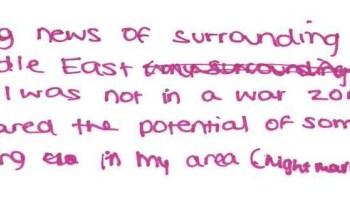 g news of surrounding
dle East
I was not in a war zon
ared the potential of som
ng in my area (nightmar